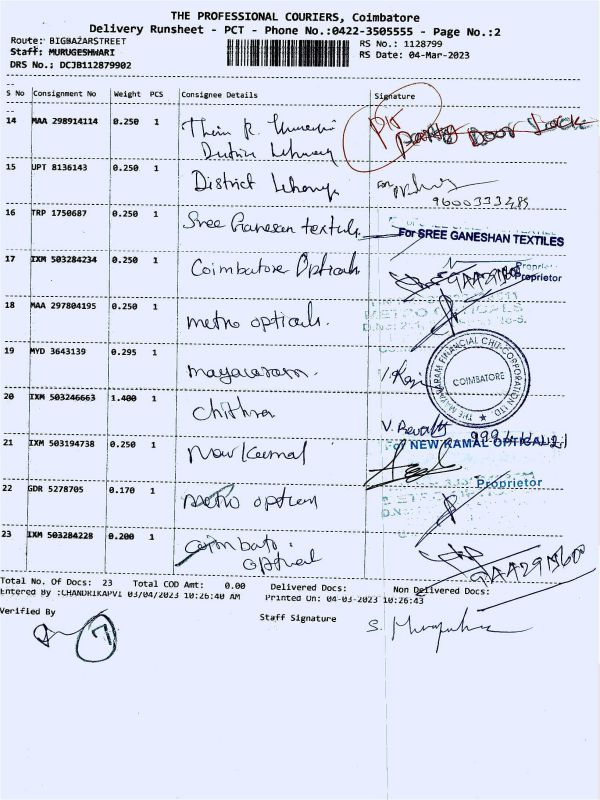 THE PROFESSIONAL COURIERS, Coimbatore
Delivery Runsheet - PCT - Phone No.:0422-3505555 - Page No.:2
Route: BIGBAZARSTREET RS No.: 1128799
Staff: MURUGESHWARI RS Date: 04-Mar-2023
DRS No.: DCJB112879902
S No Consignment No Weight PCS Consignee Details Signature
14 MAA 298914114 0.250 1 Door Lock
15 UPT 8136143 0.250 1 District
9600333485
16 TRP 1750687 0.250 1 Sree Ganesan textiles
For SREE GANESHAN TEXTILES
Proprietor
17 IXM 503284234 0.250 1 Coimbatore Opticals
18 MAA 297804195 0.250 1 metro opticals.
METRO OPTICALS
19 MYD 3643139 0.295 1
THE MAYAVARAM FINANCIAL CHIT CORPORATION LTD
COIMBATORE
20 IXM 503246663 1.400 1 Chithra V. Revathi
21 IXM 503194738 0.250 1 New Kamal
For NEW KAMAL OPTICAL
Proprietor
22 GDR 5278705 0.170 1 metro optical
23 IXM 503284228 0.200 1 Coimbato. optical
Total No. Of Docs: 23 Total COD Amt: 0.00 Delivered Docs: Non Delivered Docs:
Entered By :CHANDRIKAPVI 03/04/2023 10:26:40 AM Printed On: 04-03-2023 10:26:43
Verified By Staff Signature
7